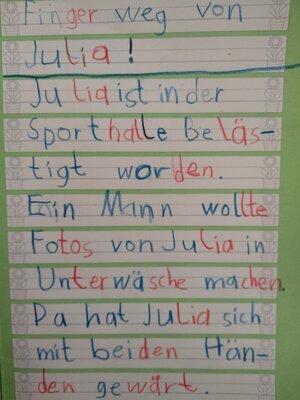 Finger weg von
Julia!
Julia ist in der
Sporthalle beläs-
tigt worden.
Ein Mann wollte
Fotos von Julia in
Unterwäsche machen.
Da hat Julia sich
mit beiden Hän-
den gewärt.